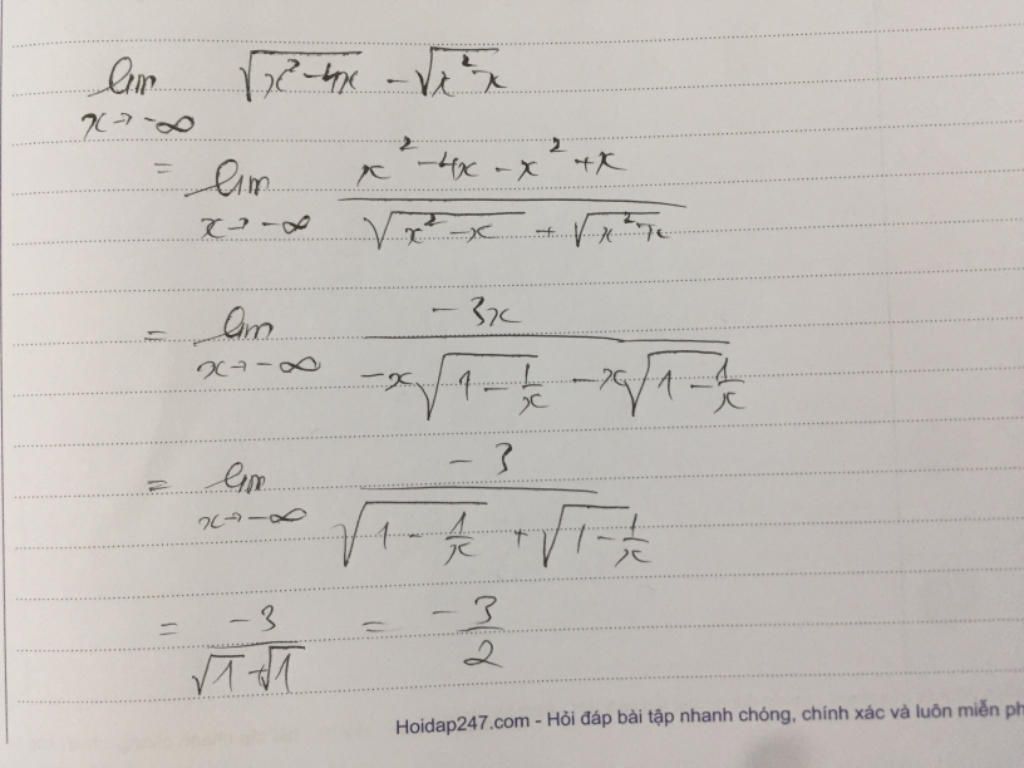 lim √(x² - 4x) - √(x² - x)
x → -∞
= lim (x² - 4x - x² + x) / (√(x² - x) + √(x² - x))
x → -∞
= lim (-3x) / (-x√(1 - 1/x) - x√(1 - 1/x))
x → -∞
= lim (-3) / (√(1 - 1/x) + √(1 - 1/x))
x → -∞
= -3 / (√1 + √1) = -3/2
Hoidap247.com - Hỏi đáp bài tập nhanh chóng, chính xác và luôn miễn ph